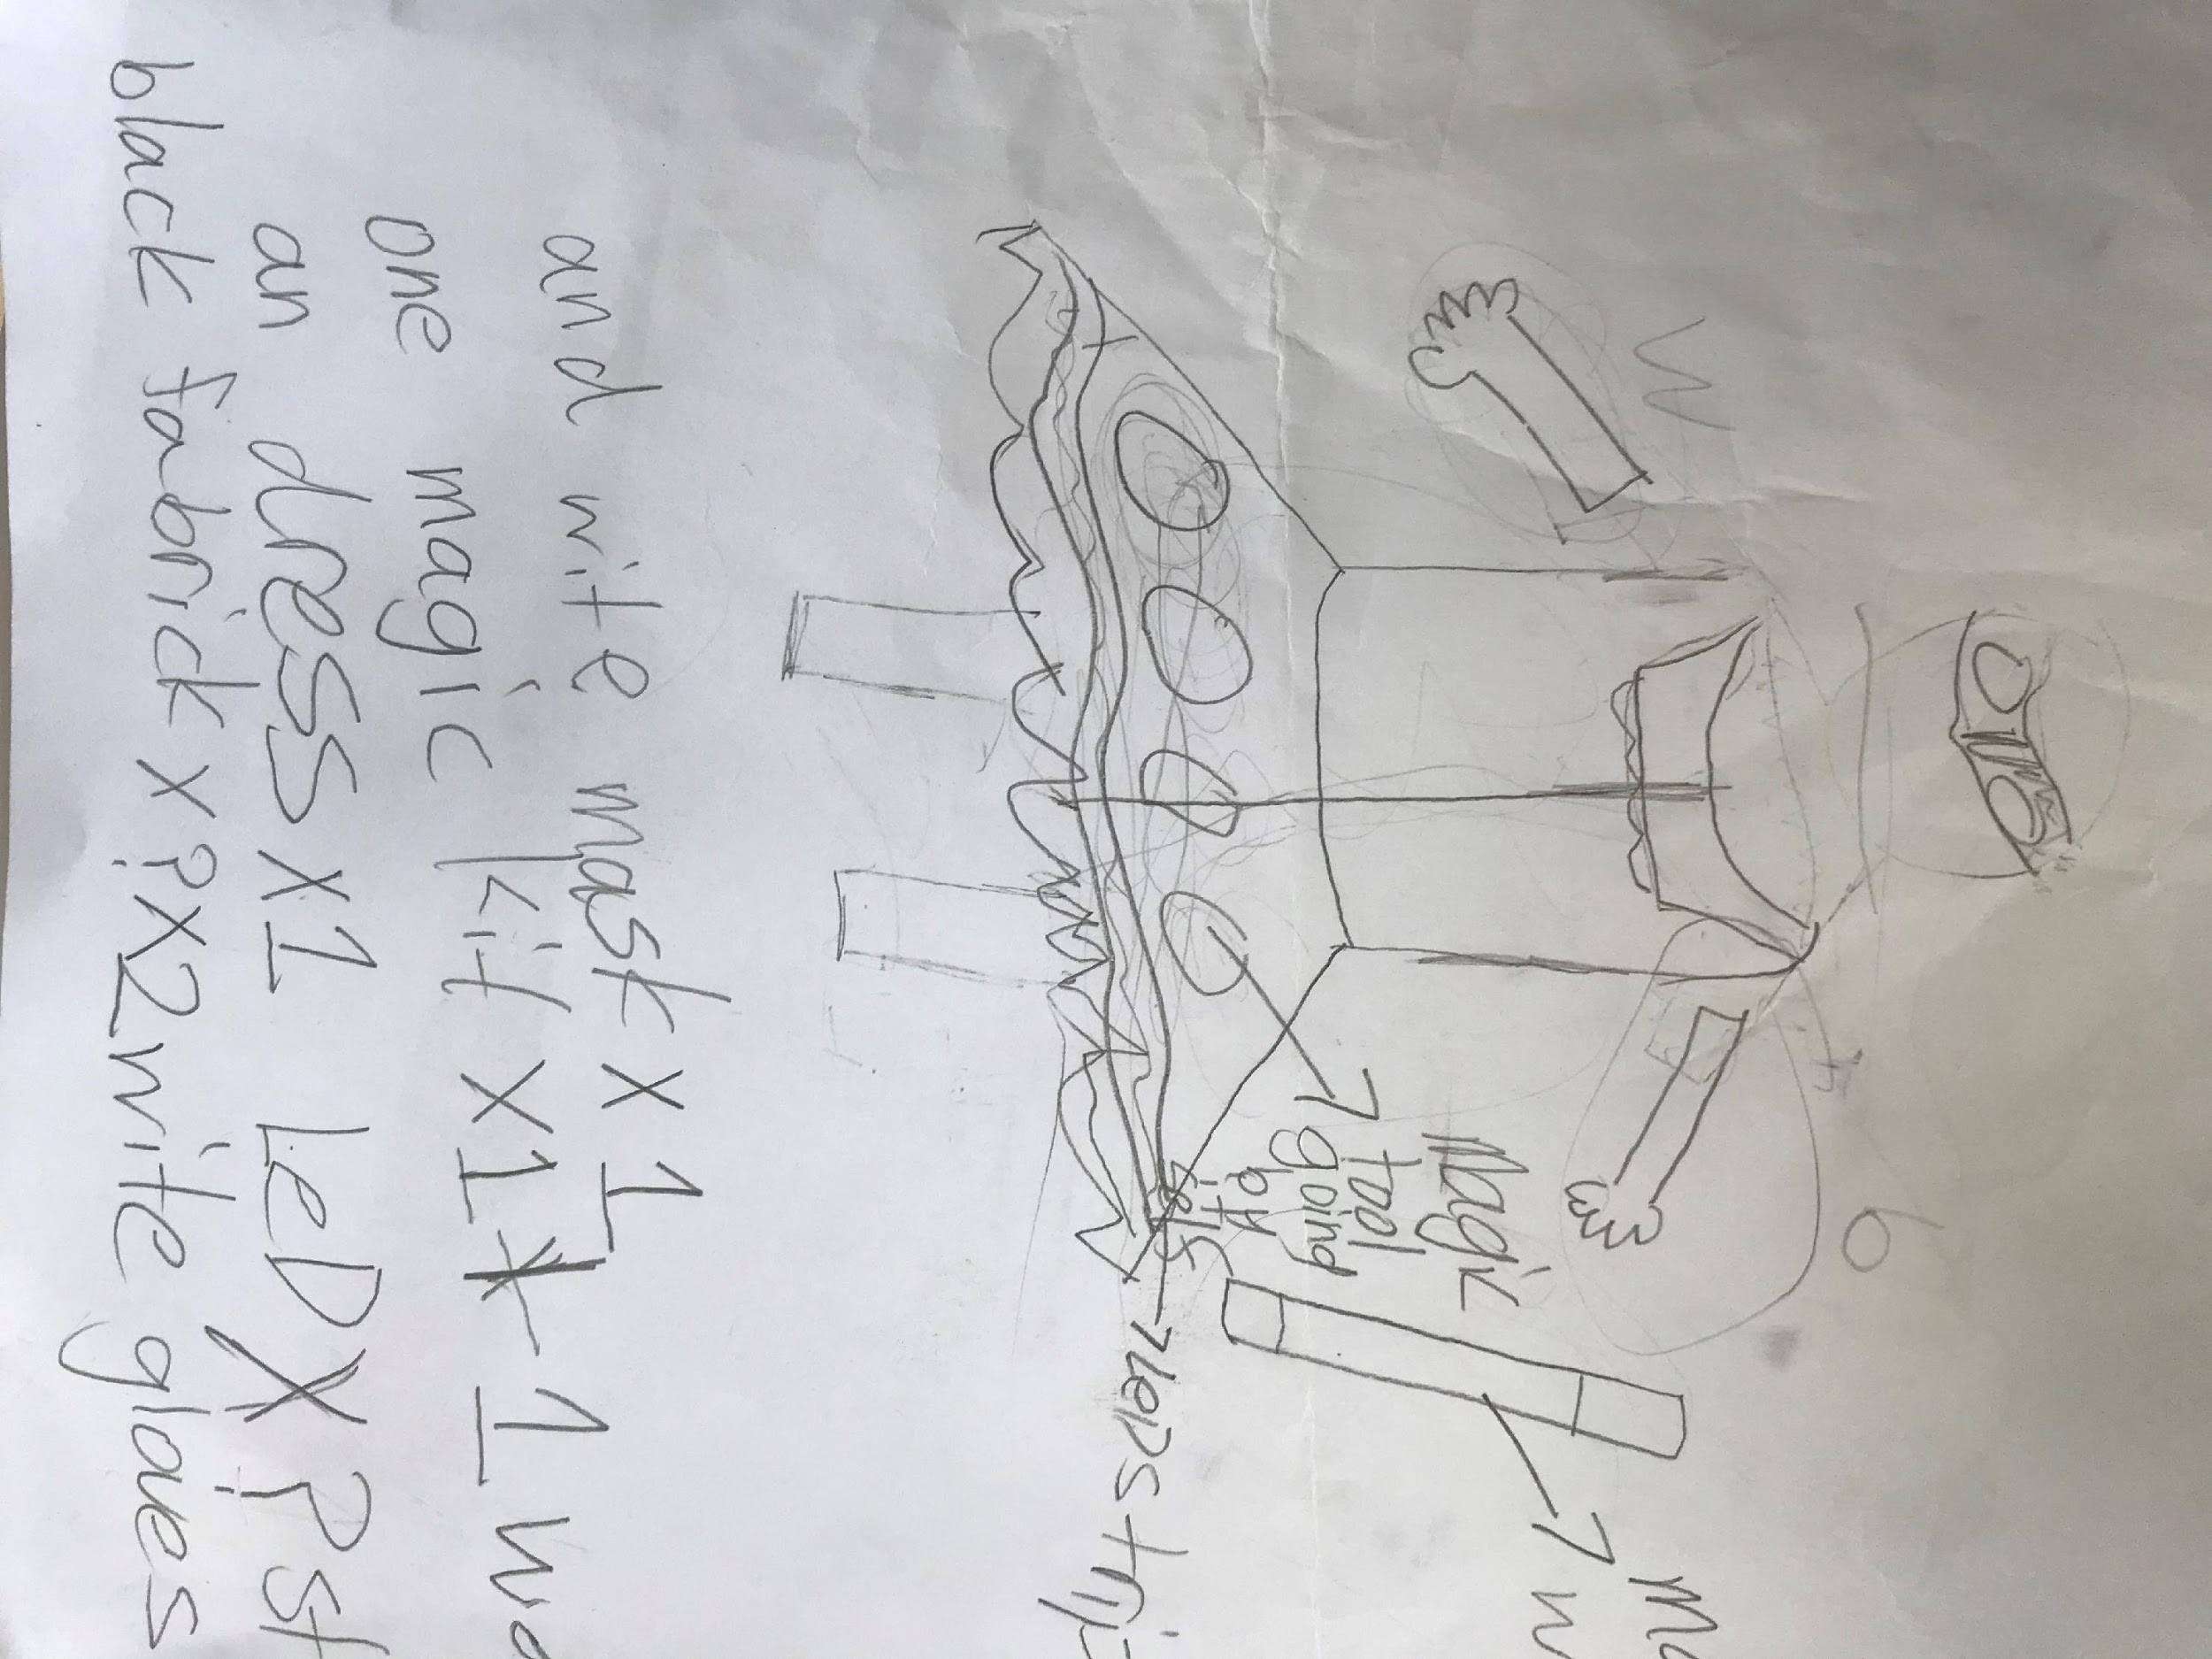 Magic
tool
going
LEDS
and wite mask x 1
one magic kit x1 1
an dress x1 LeD X ? st
black fabrick x? x2 wite gloves